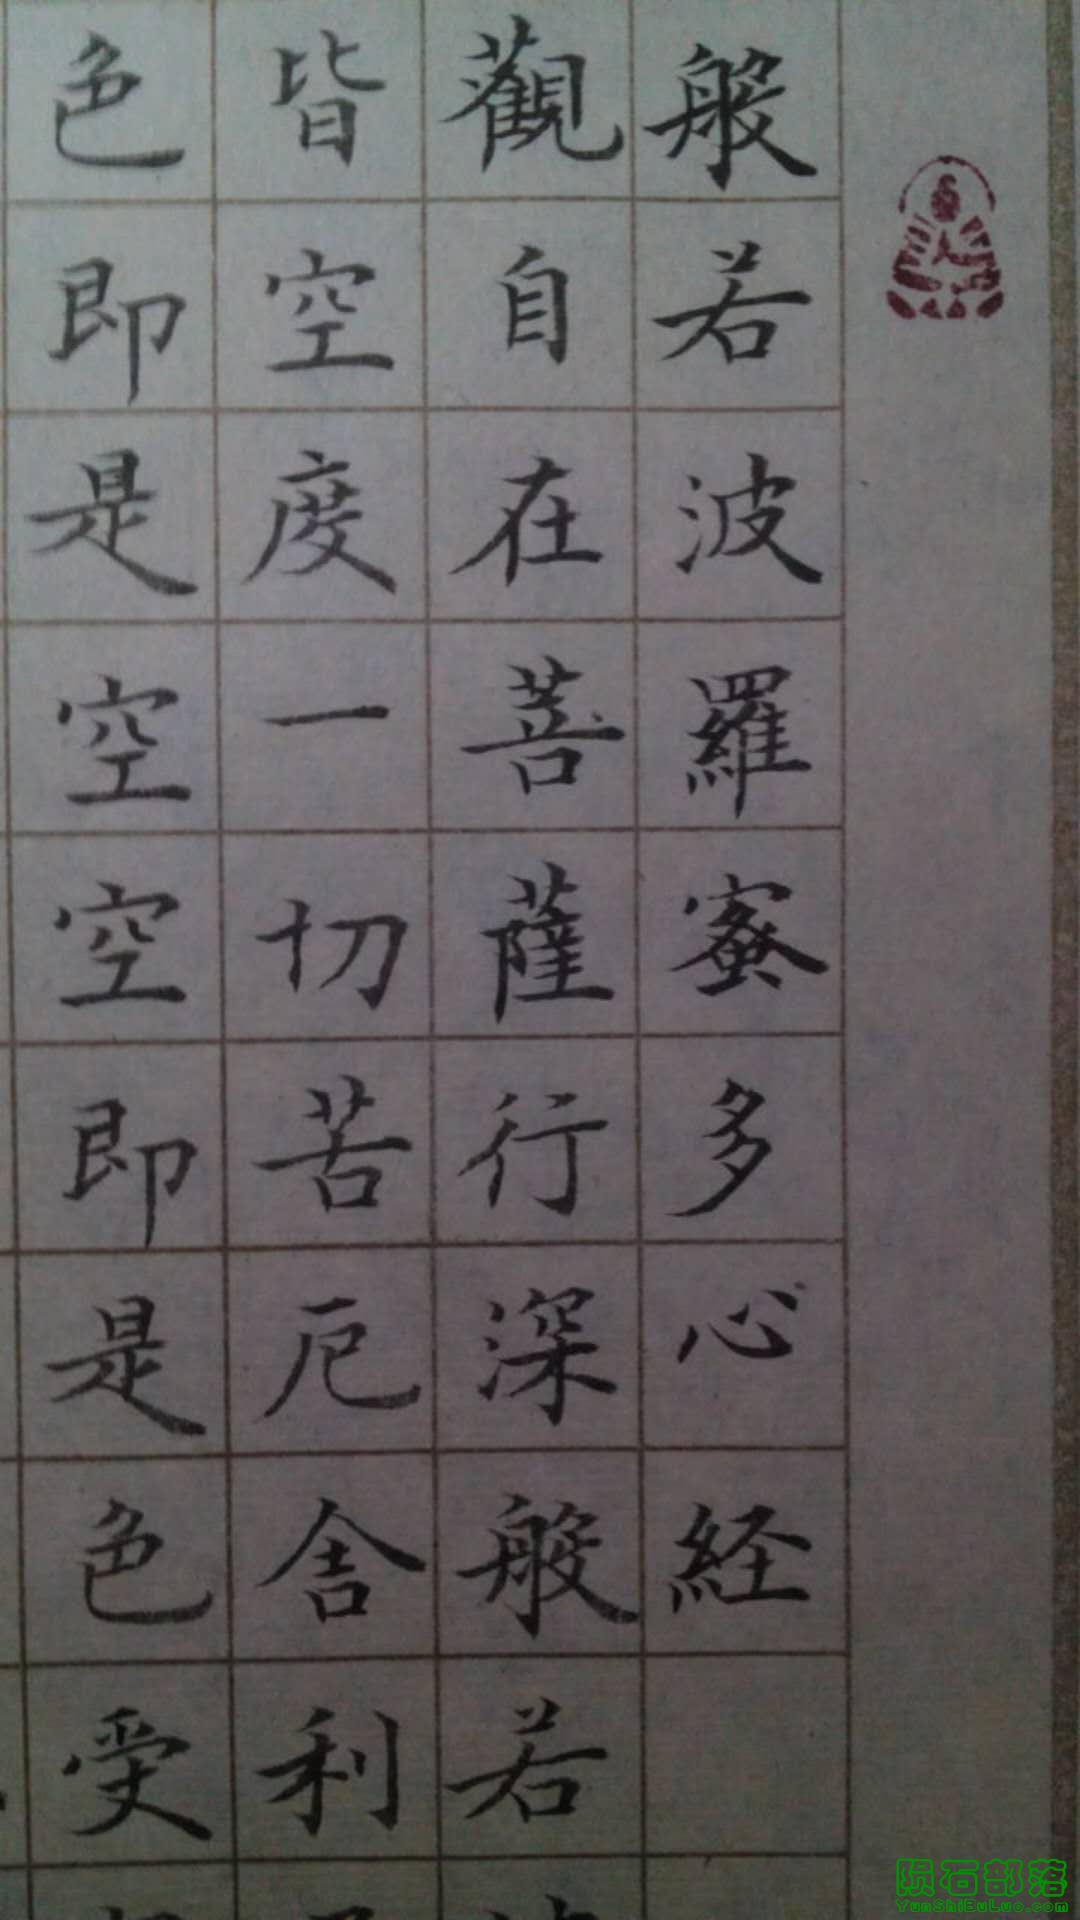 般若波羅蜜多心経
觀自在菩薩行深般若
皆空度一切苦厄舍利
色即是空空即是色受
陨石部落
YunShiBuLuo.com